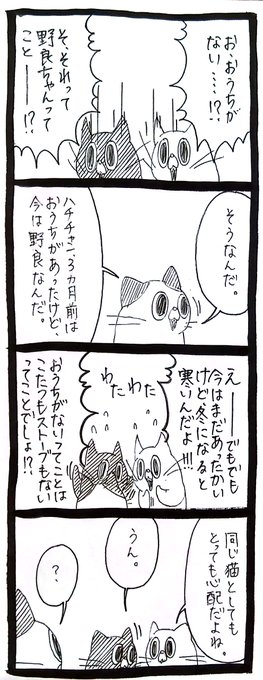 お、おうちが
ない……!?
そ、それって
野良ちゃんって
こと――!?
そうなんだ。
ハチチャン、3ヵ月前は
おうちがあったけど、
今は野良なんだ。
えーーでもでも
今はまだあったかい
けど冬になると
寒いんだよ!!!
わたわた
おうちがないってことは
こたつもストーブもない
ってことでしょ!?
同じ猫としても
とっても心配だよね。
うん。
?